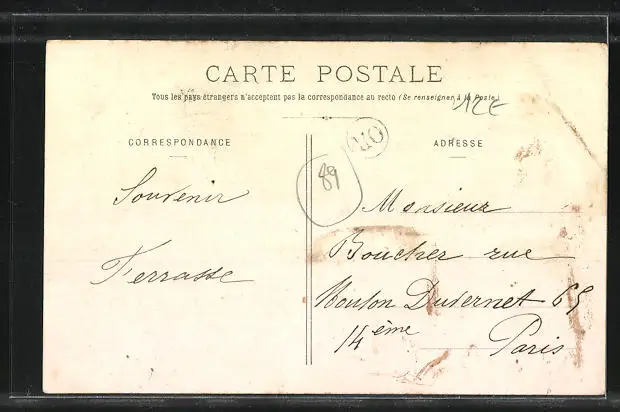 CARTE POSTALE
Tous les pays étrangers n'acceptent pas la correspondance au recto (Se renseigner à la Poste)
12E
CORRESPONDANCE
OR
ADRESSE
89
Souvenir
Terrasse
Monsieur
Boucher rue
Mouton Duvernet 69
14ème
Paris